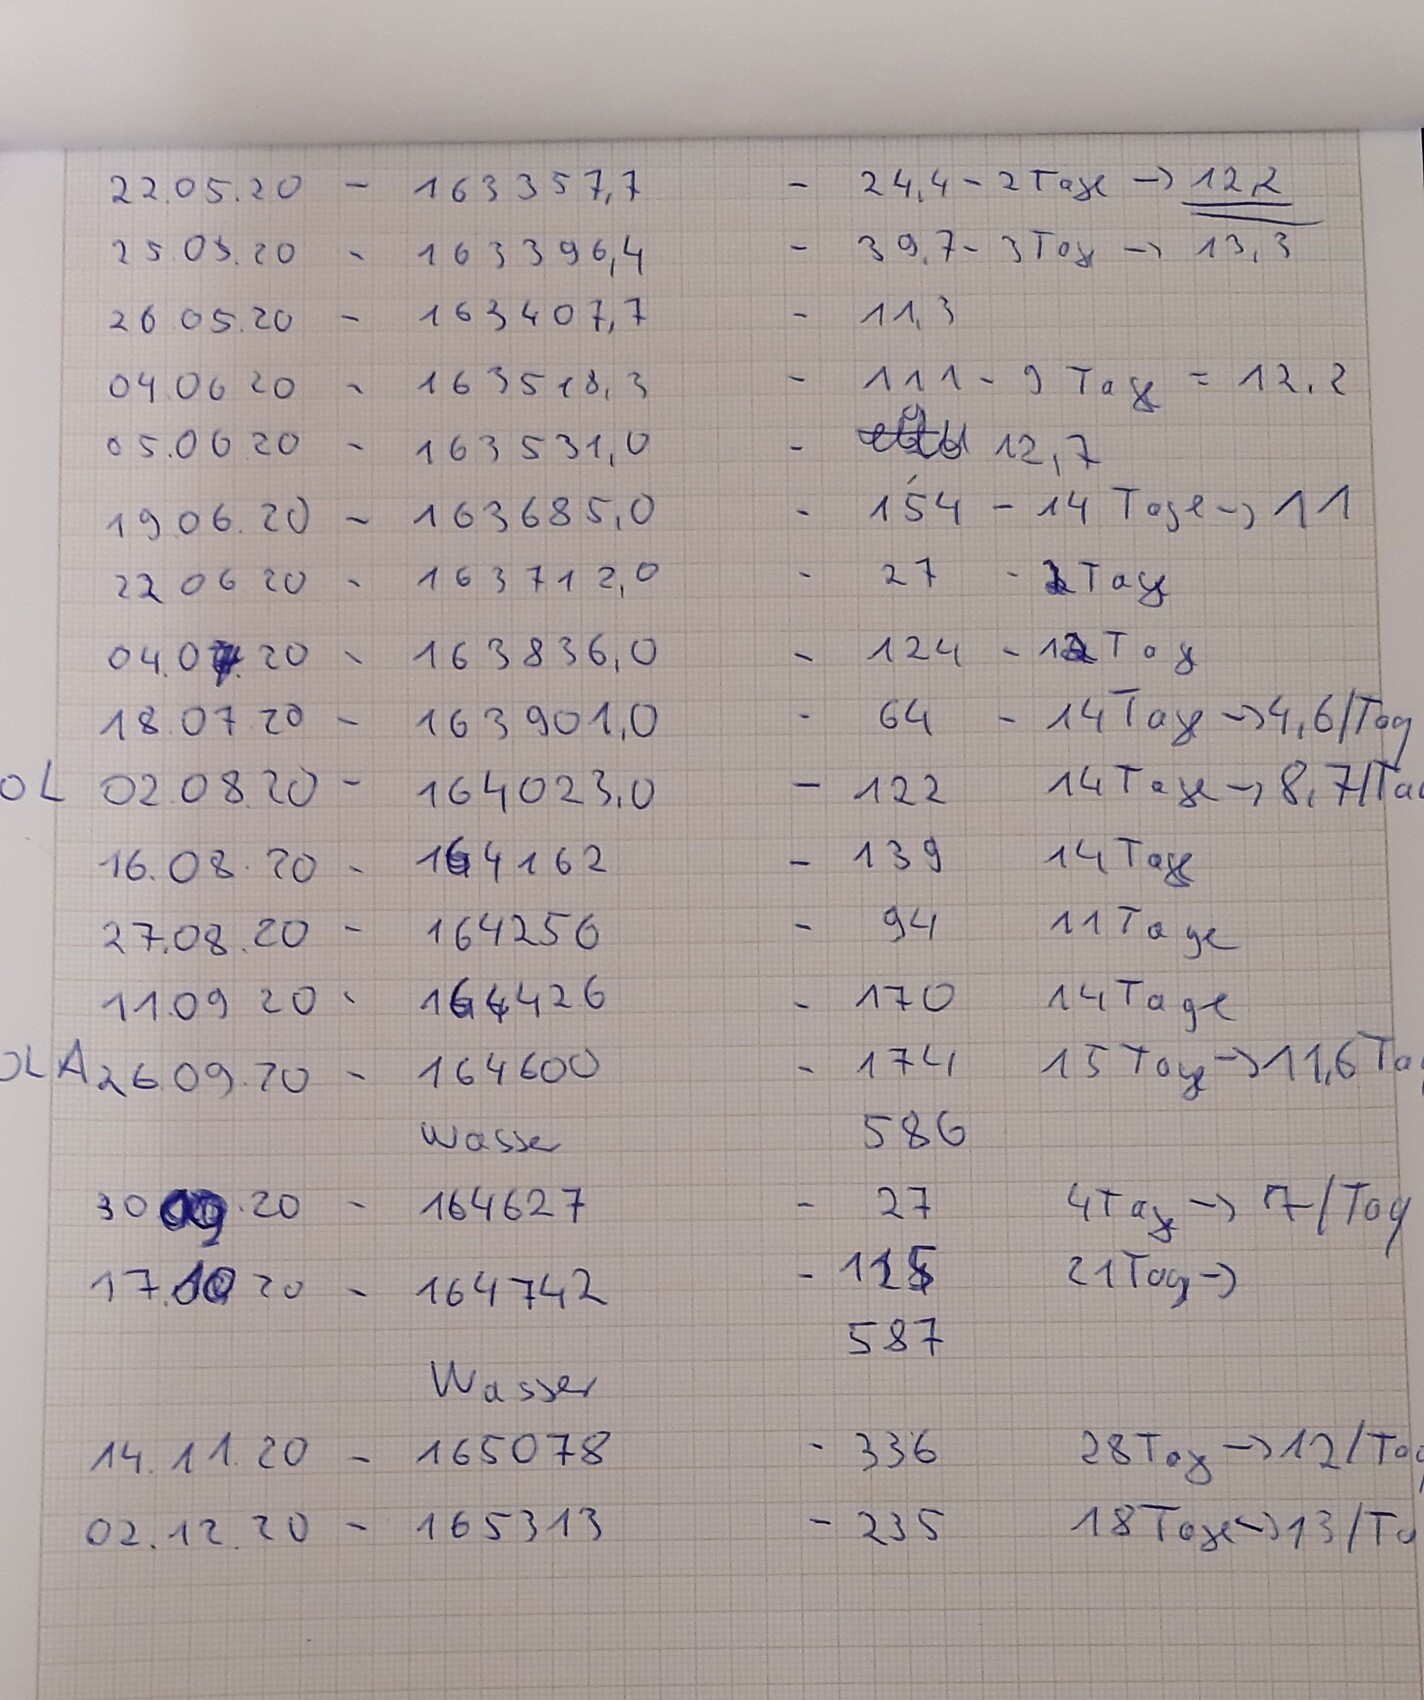 22.05.20 - 163357,7 - 24,4 - 2 Tage -> 12,2
25.05.20 - 163396,4 - 39,7 - 3 Tage -> 13,3
26.05.20 - 163407,7 - 11,3
04.06.20 - 163518,3 - 111 - 9 Tage = 12.2
05.06.20 - 163531,0 - 12,7
19.06.20 - 163685,0 - 154 - 14 Tage -> 11
22.06.20 - 163712,0 - 27 - Tage
04.07.20 - 163836,0 - 124 - 12 Tage
18.07.20 - 163901,0 - 64 - 14 Tage -> 4,6/Tag
OL 02.08.20 - 164023,0 - 122 14 Tage -> 8,7/Tag
16.08.20 - 164162 - 139 14 Tage
27.08.20 - 164256 - 94 11 Tage
11.09.20 - 164426 - 170 14 Tage
OLA 26.09.20 - 164600 - 174 15 Tage -> 11,6 Ta
Wasser 586
30.09.20 - 164627 - 27 4 Tage -> 7/Tag
17.10.20 - 164742 - 115 21 Tag ->
587
Wasser
14.11.20 - 165078 - 336 28 Tage -> 12/Tag
02.12.20 - 165313 - 235 18 Tage -> 13/Ta